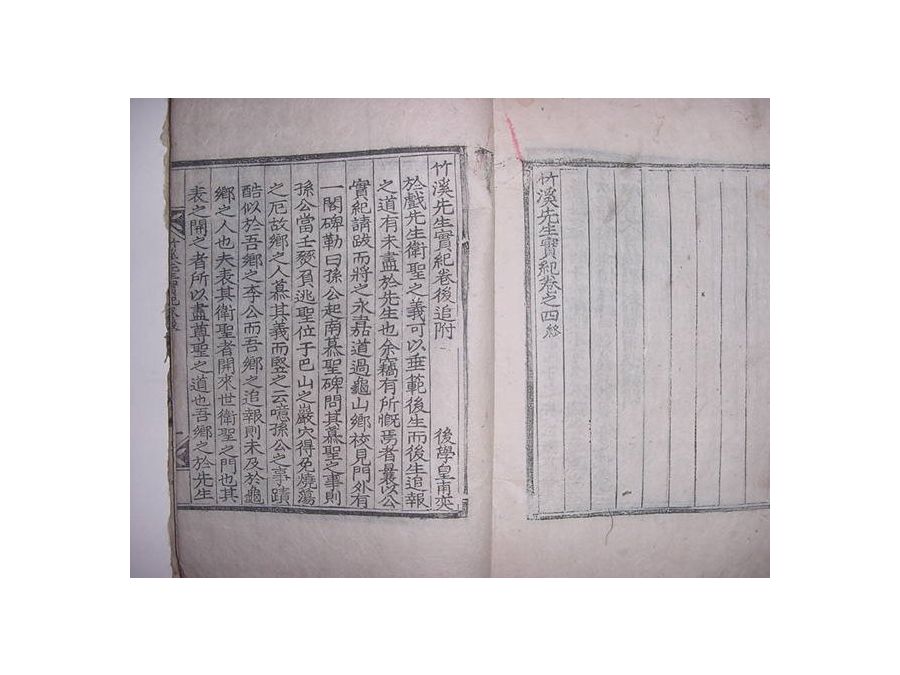 竹溪先生實紀卷之四終
竹溪先生實紀卷後追附
後學皇甫奕
於戲先生衛聖之義可以垂範後生而後生追報
之道有未盡於先生也余竊有所慨焉者曩以公
實紀請跋而將之永嘉道過龜山鄉校見門外有
一閣碑勒曰孫公起南慕聖碑問其慕聖之事則
孫公當壬燹負逃聖位于巴山之巖穴得免燒蕩
之厄故鄉之人慕其義而竪之云噫孫公之事蹟
酷似於吾鄉之李公而吾鄉之追報則未及於龜
鄉之人也夫表其衛聖者開來世衛聖之門也其
表之開之者所以盡尊聖之道也吾鄉之於先生